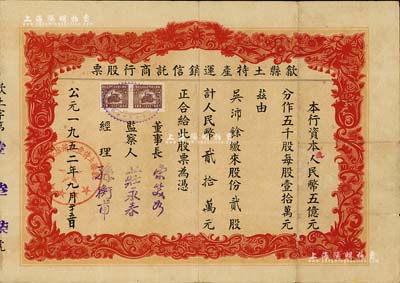 上海陽明拍賣
歙縣土特產運銷信託商行股票
本行資本人民幣五億元
分作五千股每股壹拾萬元
茲由
吳沛餘繳來股份貳股
計人民幣貳拾萬元
正合給此股票為憑
董事長
監察人
經理
公元一九五二年九月十五日
上海陽明拍賣